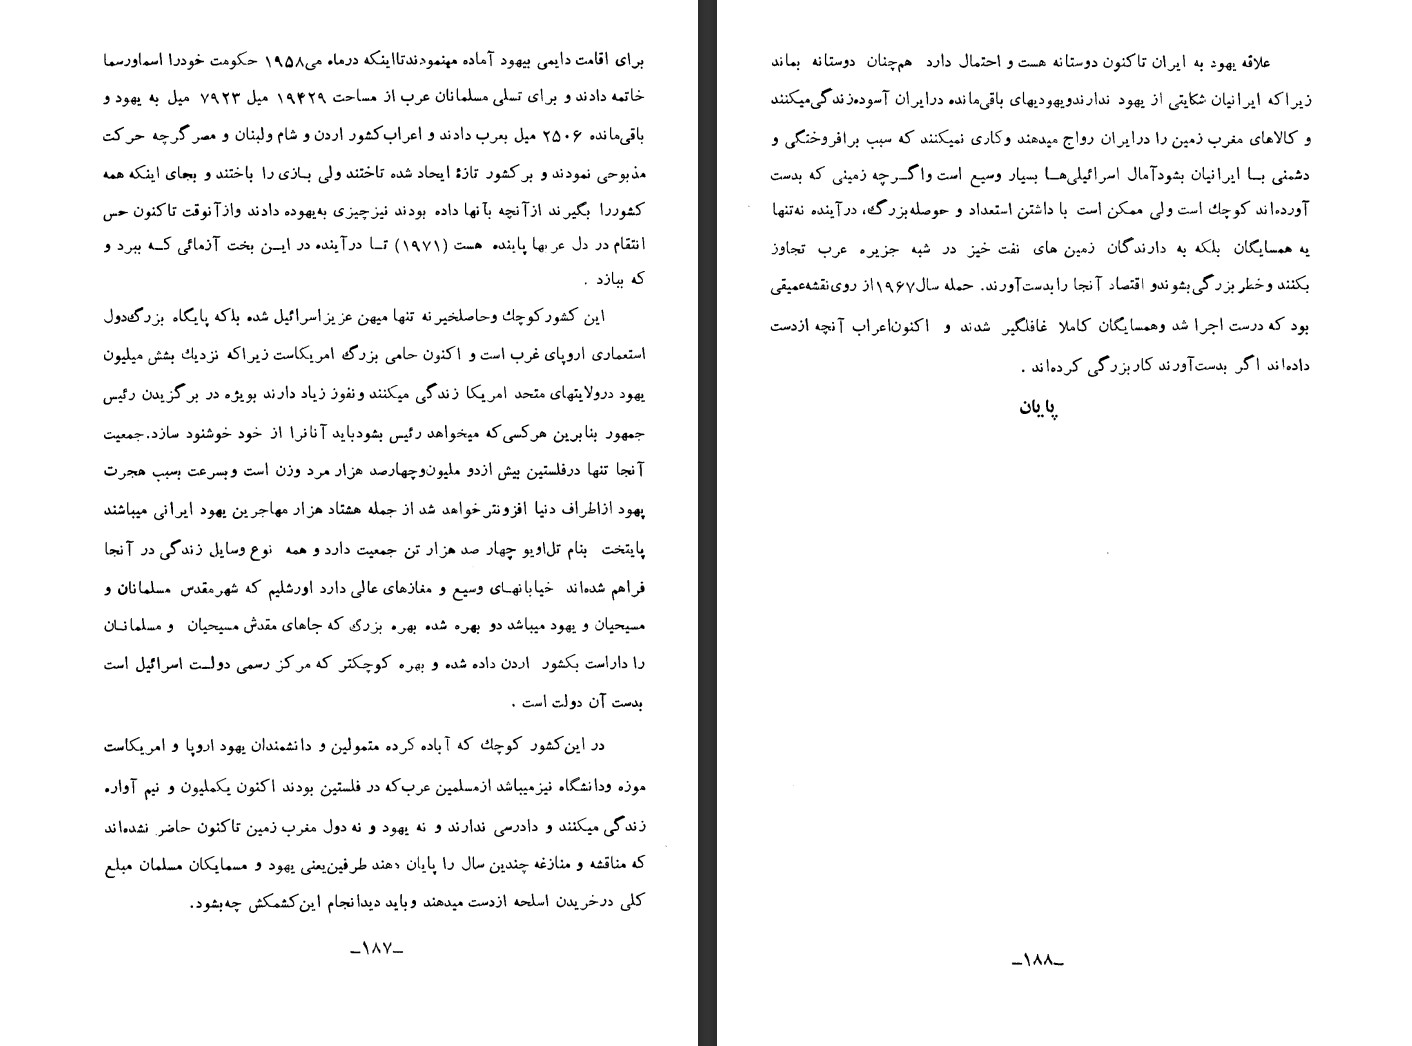 برای اقامت دایمی بیهود آماده مینمودندتااینکه درماه می۱۹۵۸ حکومت خودرا اسماورسما
خاتمه دادند و برای تسلی مسلمانان عرب از مساحت ۱۹۴۲۹ میل ۷۹۲۳ میل به یهود و
باقی‌مانده ۲۵۰۶ میل بعرب دادند و اعراب‌کشور اردن و شام ولبنان و مصر گرچه حرکت
مذبوحی نمودند و بر کشور تازهٔ ایحاد شده تاختند ولی بـازی را باختند و بجای اینکه همه
کشوررا بگیرند ازآنچه بآنها داده بودند نیزچیزی به‌یهوده دادند وازآنوقت تاکنون حس
انتقام در دل عربها پاینده هست (۱۹۷۱) تـا درآینده در ایـن بخت آزمائی کـه ببرد و
که ببازد .
این کشورکوچك وحاصلخیر نه تنها میهن عزیزاسرائیل شده بلکه پایگاه بزرگ‌دول
استعماری اروپای غرب است و اکنون حامی بزرگ امریکاست زیراکه نزدیك بشش میلیون
یهود درولایتهای متحد امریکا زندگی میکنند ونفوز زیاد دارند بویژه در برگزیدن رئیس
جمهور بنابرین هرکسی‌که میخواهد رئیس بشودباید آنانرا از خود خوشنود سازد.جمعیت
آنجا تنها درفلستین بیش ازدو ملیون‌وچهارصد هزار مرد وزن است وبسرعت بسبب هجرت
یهود ازاطراف دنیا افزونتر خواهد شد از جمله هشتاد هزار مهاجرین یهود ایرانی میباشند
پایتخت بنام تل‌اویو چهار صد هزار تن جمعیت دارد و همه نوع وسایل زندگی در آنجا
فراهم شده‌اند خیابانهـای وسیع و مغازهای عالی دارد اورشلیم که شهرمقدس مسلمانان و
مسیحیان و یهود میباشد دو بهره شده بهره بزرک که جاهای مقدش مسیحیان و مسلمانـان
را داراست بکشور اردن داده شده و بهره کوچکتر که مرکز رسمی دولـت اسرائیل است
بدست آن دولت است .
در این‌کشور کوچك که آباده کرده متمولین و دانشمندان یهود اروپا و امریکاست
موزه ودانشگاه نیزمیباشد ازمسلمین عرب‌که در فلستین بودند اکنون یکملیون و نیم آواره
زندگی میکنند و دادرسی ندارند و نه یهود و نه دول مغرب زمین تاکنون حاضر نشده‌اند
که مناقشه و منازغه چندین سال را پایان دهند طرفین‌یعنی یهود و مسمایکان مسلمان مبلغ
کلی درخریدن اسلحه ازدست میدهند وباید دیدانجام این‌کشمکش چه‌بشود.
ـ۱۸۷ـ
علاقه یهود به ایران تاکنون دوستانه هست و احتمال دارد هم‌چنان دوستانه بماند
زیراکه ایرانیان شکایتی از یهود ندارندویهودیهای باقی‌مانده درایران آسوده‌زندگی‌میکنند
و کالاهای مغرب زمین را درایران رواج میدهند وکاری نمیکنند که سبب برافروختگی و
دشمنی بـا ایرانیان بشودآمال اسرائیلی‌هـا بسیار وسیع است واگـرچه زمینی که بدست
آورده‌اند کوچك است ولی ممکن است با داشتن استعداد و حوصله‌بزرگ، درآینده نه‌تنها
یه همسایگان بلکه به دارندگان زمین های نفت خیز در شبه جزیره عرب تجاوز
بکنند وخطر بزرگی‌بشوندو اقتصاد آنجا رابدست‌آورند. حمله سال۱۹۶۷از روی‌نقشه‌عمیقی
بود که درست اجرا شد وهمسایگان کاملا غافلگیر شدند و اکنون‌اعراب آنچه ازدست
داده‌اند اگر بدست‌آورند کاربزرگی کرده‌اند .
پایان
ـ۱۸۸ـ